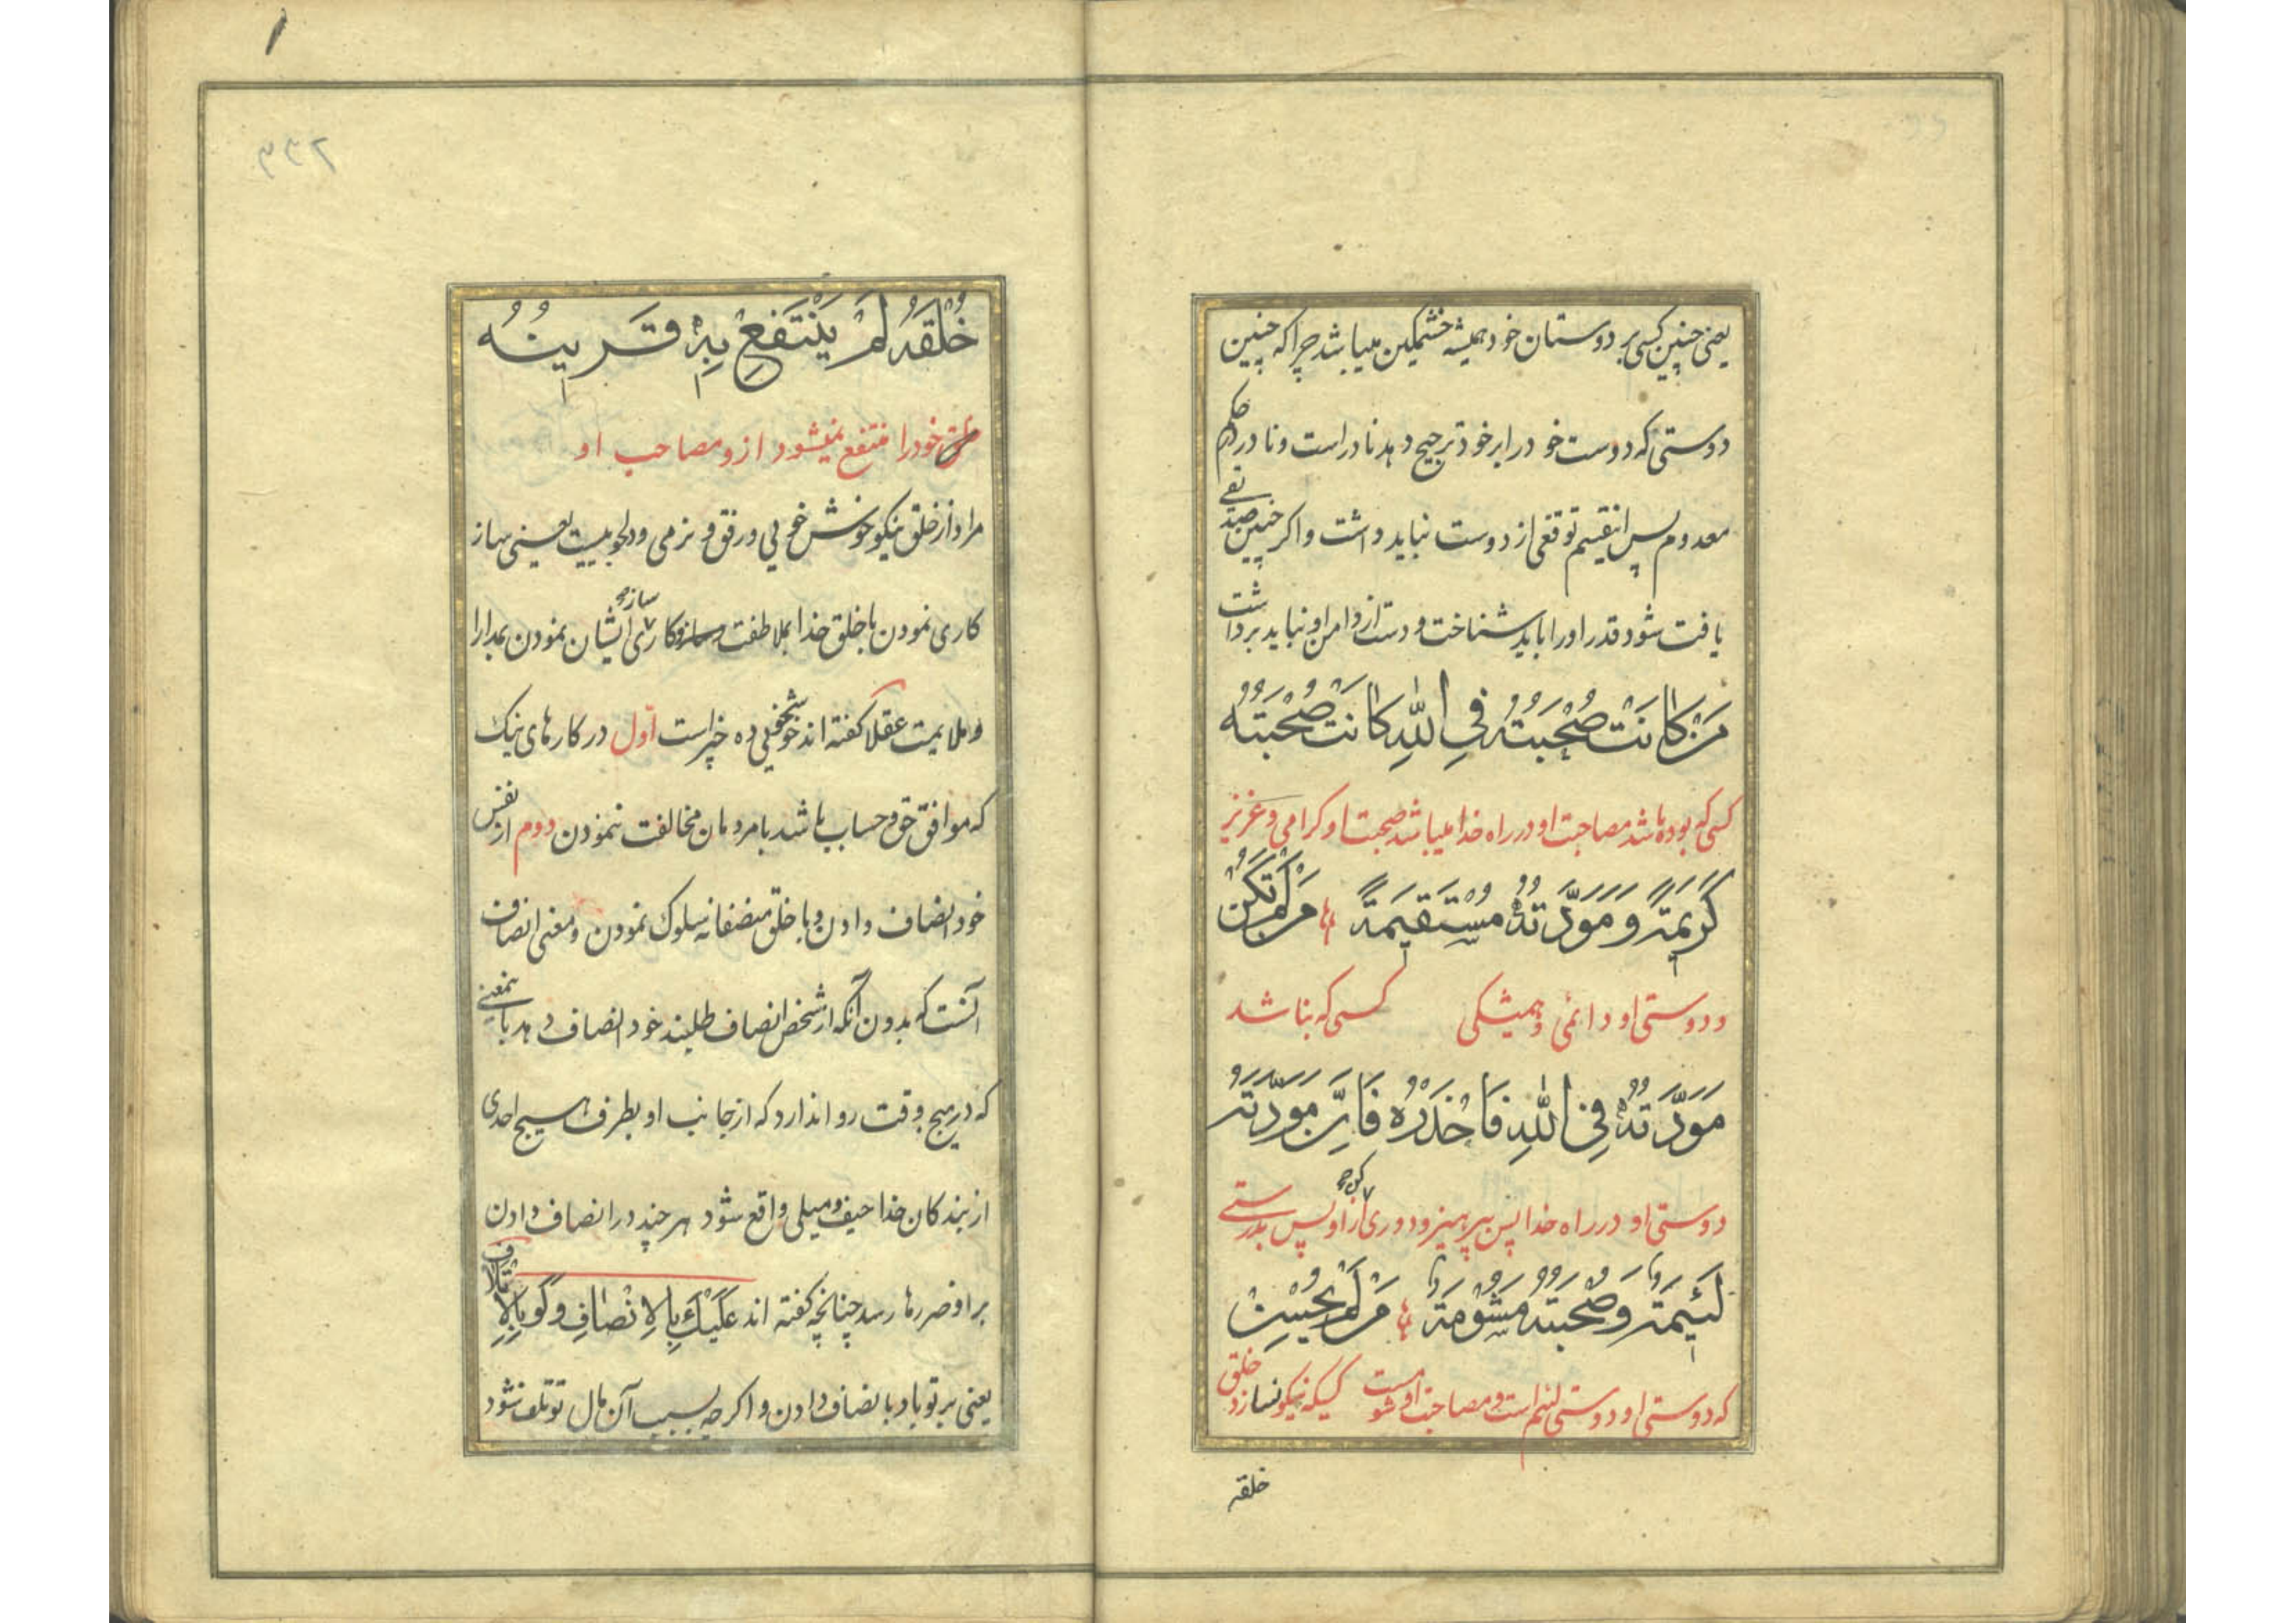 یعنی چنین کسی بر دوستان خود همیشه خشمکین میباشد چرا که چنین
دوستی که دوست خود را بر خود ترجیح دهد نادر است و نادر در حکم
معدوم پس اینقسم توقعی از دوست نباید داشت و اکر چنین صدیقی
یافت شود قدر او را باید شناخت و دست از دامن او نباید برداشت
مَنْ كَانَتْ صُحْبَتُهُ فِي اللّٰهِ كَانَتْ صُحْبَتُهُ
کسی که بوده باشد مصاحبت او در راه خدا میباشد صحبت او کرامی و عزیز
كَرِيمَةً وَ مَوَدَّتُهُ مُسْتَقِيمَةً مَنْ لَمْ تَكُنْ
و دوستی او دائمی و همیشکی کسی که نباشد
مَوَدَّتُهُ فِي اللّٰهِ فَاحْذَرْهُ فَاِنَّ مَوَدَّتَهُ
دوستی او در راه خدا پس بپرهیز و دوری کن از او پس بدرستی
لَئِيمَةٌ وَ صُحْبَتُهُ مَشُومَةٌ مَنْ لَمْ يُحْسِنْ
که دوستی او دوستی لئیم است و مصاحبت او شوم است کسیکه نیکو نسازد خلق
خلقه
خُلْقَهُ لَمْ يَنْتَفِعْ بِهِ قَرِينُهُ
خود را منتفع نمیشود از و مصاحب او
مراد از خلق نیکو خوش خویی و رفق و نرمی و دلجوییست یعنی ساز
کاری نمودن با خلق خدا بملاطفت و سازکاری ایشان نمودن بمدارا
و ملایمت عقلا کفته اند خوشخلقی ده چیز است اوّل در کارهای نیک
که موافق حق و حساب باشد با مردمان مخالفت ننمودن دوم از نفس
خود انصاف دادن و با خلق منصفانه سلوک نمودن و معنی انصاف
آنست که بدون آنکه از شخص انصاف طلبند خود انصاف دهد باینمعنی
که در هیچ وقت روا ندارد که از جانب او بطرف هیچ احدی
از بندکان خدا حیف و میلی واقع شود هر چند در انصاف دادن
بر او ضررها رسد چنانچه کفته اند عَلَيْكَ بِالاِنْصَافِ وَ لَوْ بِالاِتْلَافِ
یعنی بر تو باد بانصاف دادن و اکرچه بسبب آن مال تو تلف شود